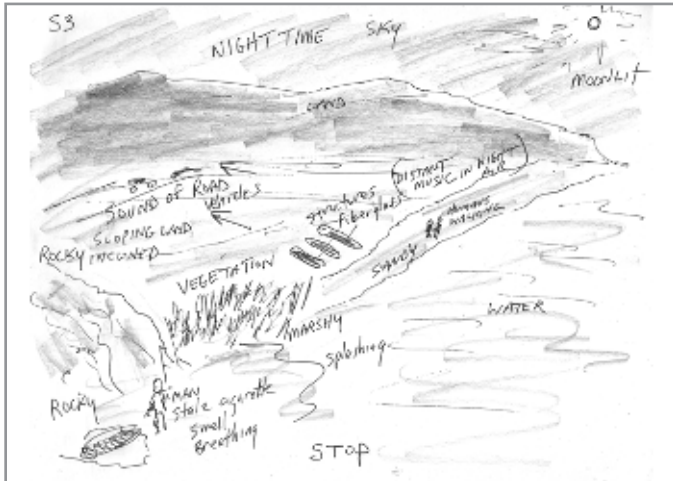 S3
NIGHT TIME SKY
MOONLIT
LAND
DISTANT
MUSIC IN NIGHT
AIR
SOUND OF ROAD
SLOPING LAND
ROCKY INCLINED
structures
Fiberglass
HUMANS
WALKING
SANDY
VEGETATION
MARSHY
WATER
splashing
ROCKY
MAN
Stale cigarette
smell
Breathing
STOP